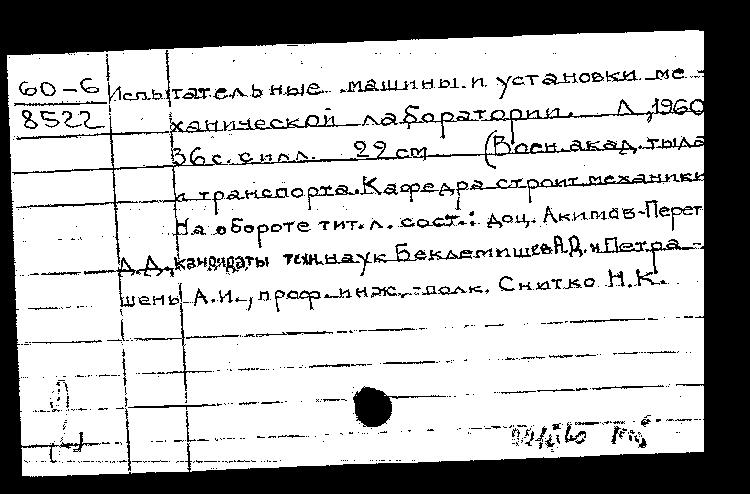 60-6
8522
Испытательные машины и установки ме-
ханической лаборатории. Л., 1960
36 с. с илл. 29 см (Воен. акад. тыла
и транспорта. Кафедра строит. механики
На обороте тит. л. сост.: доц. Акимов-Перет
Д.Д., кандидаты техн. наук Беклемишев А.Д. и Петра-
шень А.И., проф. инж.-полк. Снитко Н.К.